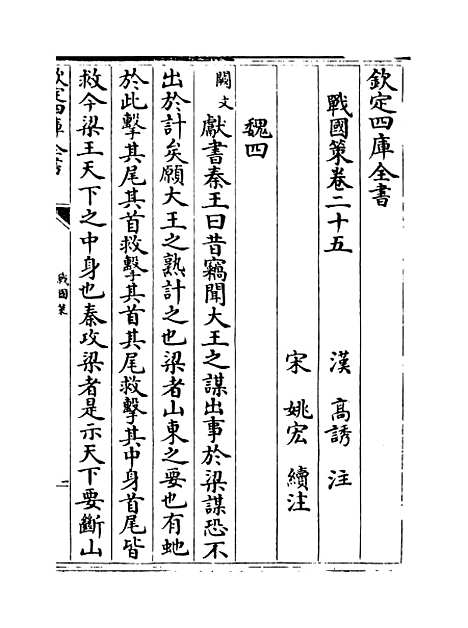 欽定四庫全書
戰國策卷二十五
漢 高誘 注
宋 姚宏 續注
魏四
闕文獻書秦王曰昔竊聞大王之謀出事於梁謀恐不
出於計矣願大王之熟計之也梁者山東之要也有虵
於此擊其尾其首救擊其首其尾救擊其中身首尾皆
救今梁王天下之中身也秦攻梁者是示天下要斷山
欽定四庫全書
戰國策